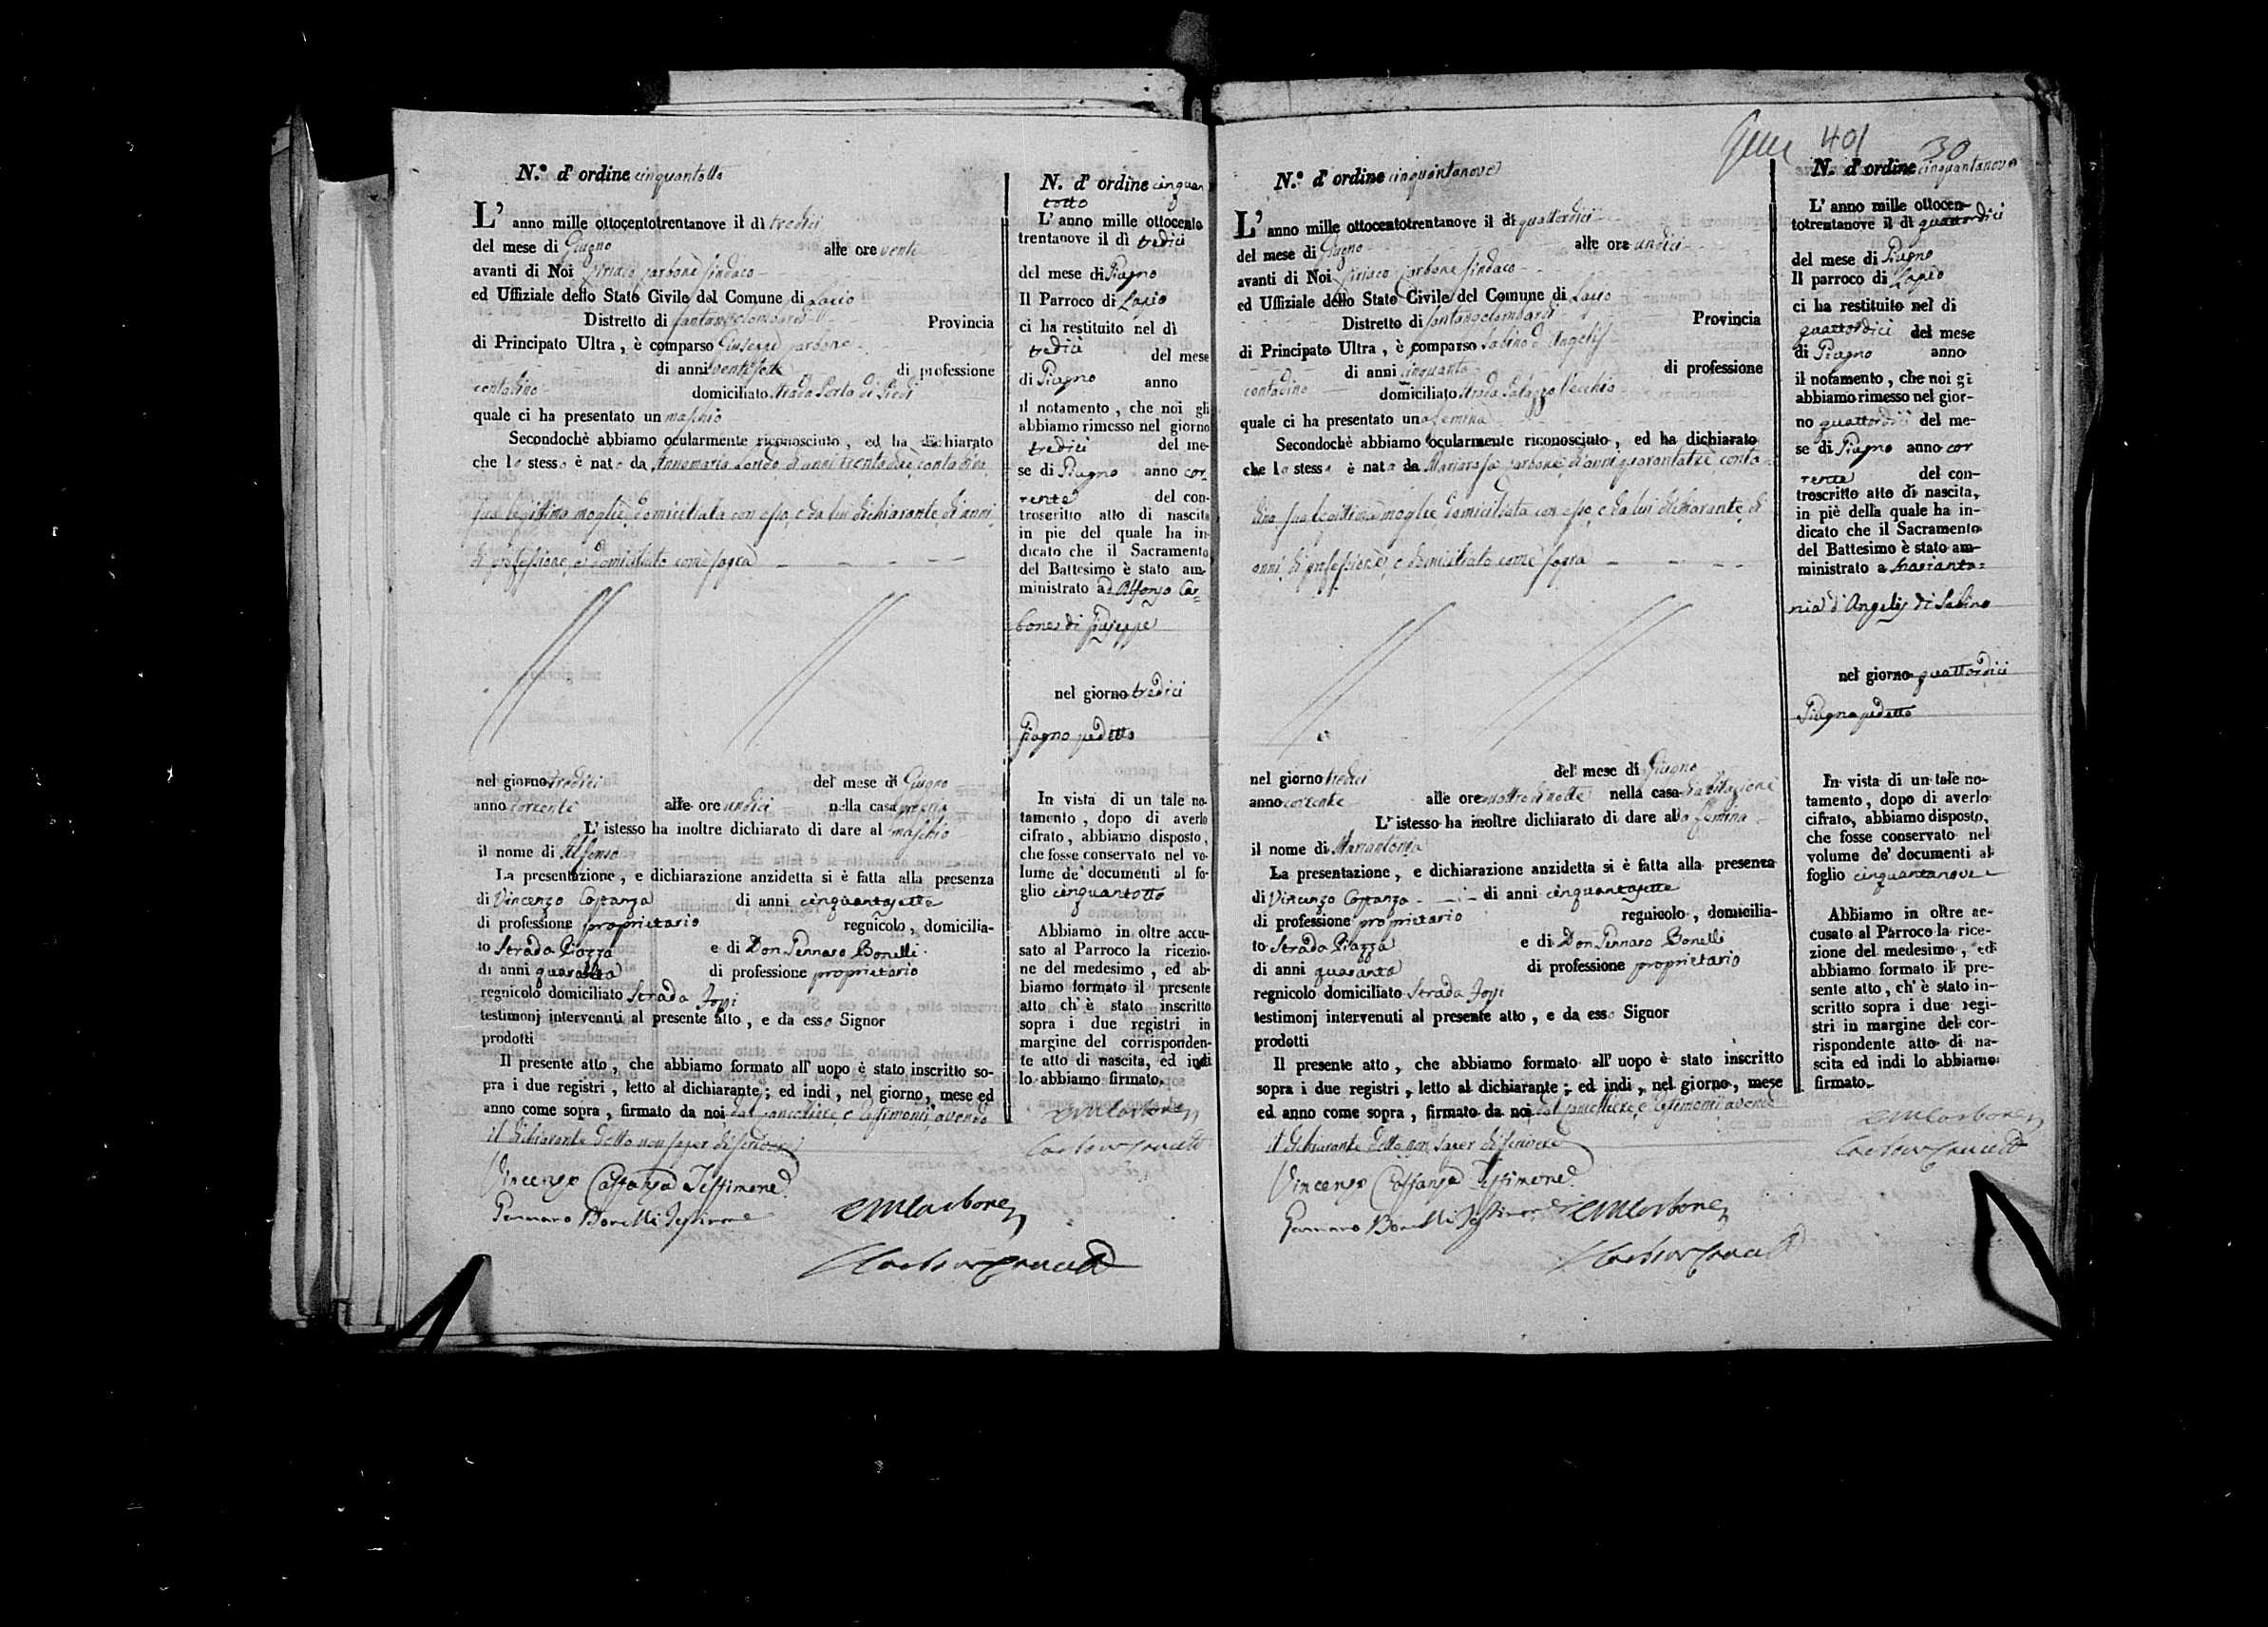 N.º d' ordine cinquantotto
L' anno mille ottocentotrentanove il dì tredici
del mese di Giugno alle ore venti
avanti di Noi Ciriaco Carbone Sindaco
ed Uffiziale dello Stato Civile del Comune di Lapio
Distretto di Santangelolombardi Provincia
di Principato Ultra, è comparso Giuseppe Carbone
di anni ventisette di professione
contadino domiciliato Strada Porta di Piedi
quale ci ha presentato un maschio
Secondochè abbiamo ocularmente riconosciuto, ed ha dichiarato
che lo stesso è nato da Annamaria di anni trentadue contadina
sua legittima moglie domiciliata con esso, e da lui dichiarante di anni,
di professione, e domiciliato come sopra
nel giorno tredici del mese di Giugno
anno corrente alle ore undici nella casa propria
L' istesso ha inoltre dichiarato di dare al maschio
il nome di Alfonso
La presentazione, e dichiarazione anzidetta si è fatta alla presenza
di Vincenzo Costanza di anni cinquantasette
di professione proprietario regnicolo, domicilia-
to Strada Piazza e di Don Gennaro Bonelli
di anni quaranta di professione proprietario
regnicolo domiciliato Strada
testimonj intervenuti al presente atto, e da esso Signor
prodotti
Il presente atto, che abbiamo formato all' uopo è stato inscritto so-
pra i due registri, letto al dichiarante; ed indi, nel giorno, mese ed
anno come sopra, firmato da noi dal Cancelliere, e testimonii avendo
il dichiarante detto non saper di scrivere
Vincenzo Costanza Testimone
Gennaro Bonelli Testimone
Carbone
N. d' ordine cinquan
totto
L' anno mille ottocento
trentanove il dì tredici
del mese di Giugno
Il Parroco di Lapio
ci ha restituito nel dì
tredici del mese
di Giugno anno
il notamento, che noi gli
abbiamo rimesso nel giorno
tredici del me-
se di Giugno anno cor
rente del con-
troscritto atto di nascita
in piè del quale ha in-
dicato che il Sacramento
del Battesimo è stato am-
ministrato ad Alfonzo Car=
bone di Giuseppe
nel giorno tredici
Giugno suddetto
In vista di un tale no-
tamento, dopo di averlo
cifrato, abbiamo disposto,
che fosse conservato nel vo-
lume de' documenti al fo-
glio cinquantotto
Abbiamo in oltre accu-
sato al Parroco la ricezio-
ne del medesimo, ed ab-
biamo formato il presente
atto ch' è stato inscritto
sopra i due registri in
margine del corrisponden-
te atto di nascita, ed indi
lo abbiamo firmato.
Carbone
401 30
N.º d' ordine cinquantanove
L' anno mille ottocentotrentanove il dì quattordici
del mese di Giugno alle ore undici
avanti di Noi Ciriaco Carbone Sindaco
ed Uffiziale dello Stato Civile del Comune di Lapio
Distretto di Santangelolombardi Provincia
di Principato Ultra, è comparso Sabino d'Angelis
di anni cinquanta di professione
contadino domiciliato Strada Palazzo Vecchio
quale ci ha presentato una femina
Secondochè abbiamo ocularmente riconosciuto, ed ha dichiarato
che la stessa è nata da Mariarosa Carbone di anni quarantatrè conta
dina sua legittima moglie domiciliata con esso, e da lui dichiarante di
anni, di professione, e domiciliato come sopra
nel giorno tredici del mese di Giugno
anno corrente alle ore quattro di notte nella casa di abitazione
L' istesso ha inoltre dichiarato di dare alla femina
il nome di Mariantonia
La presentazione, e dichiarazione anzidetta si è fatta alla presenza
di Vincenzo Costanza di anni cinquantasette
di professione proprietario regnicolo, domicilia-
to Strada Piazza e di Don Gennaro Bonelli
di anni quaranta di professione proprietario
regnicolo domiciliato Strada
testimonj intervenuti al presente atto, e da esso Signor
prodotti
Il presente atto, che abbiamo formato all' uopo è stato inscritto
sopra i due registri, letto al dichiarante; ed indi, nel giorno, mese
ed anno come sopra, firmato da noi dal Cancelliere, e testimonii avendo
il dichiarante detto non saper di scrivere
Vincenzo Costanza Testimone
Gennaro Bonelli Testimone Carbone
N. d' ordine cinquantanove
L' anno mille ottocen-
totrentanove il dì quattordici
del mese di Giugno
Il parroco di Lapio
ci ha restituito nel dì
quattordici del mese
di Giugno anno
il notamento, che noi gi
abbiamo rimesso nel gior-
no quattordici del me-
se di Giugno anno cor
rente del con-
troscritto atto di nascita,
in piè della quale ha in-
dicato che il Sacramento
del Battesimo è stato am-
ministrato a Marianto=
nia d'Angelis di Sabino
nel giorno quattordici
Giugno suddetto
In vista di un tale no-
tamento, dopo di averlo
cifrato, abbiamo disposto,
che fosse conservato nel
volume de' documenti al
foglio cinquantanove
Abbiamo in oltre ac-
cusato al Parroco la rice-
zione del medesimo, ed
abbiamo formato il pre-
sente atto, ch' è stato in-
scritto sopra i due regi-
stri in margine del cor-
rispondente atto di na-
scita ed indi lo abbiamo
firmato.
Carbone